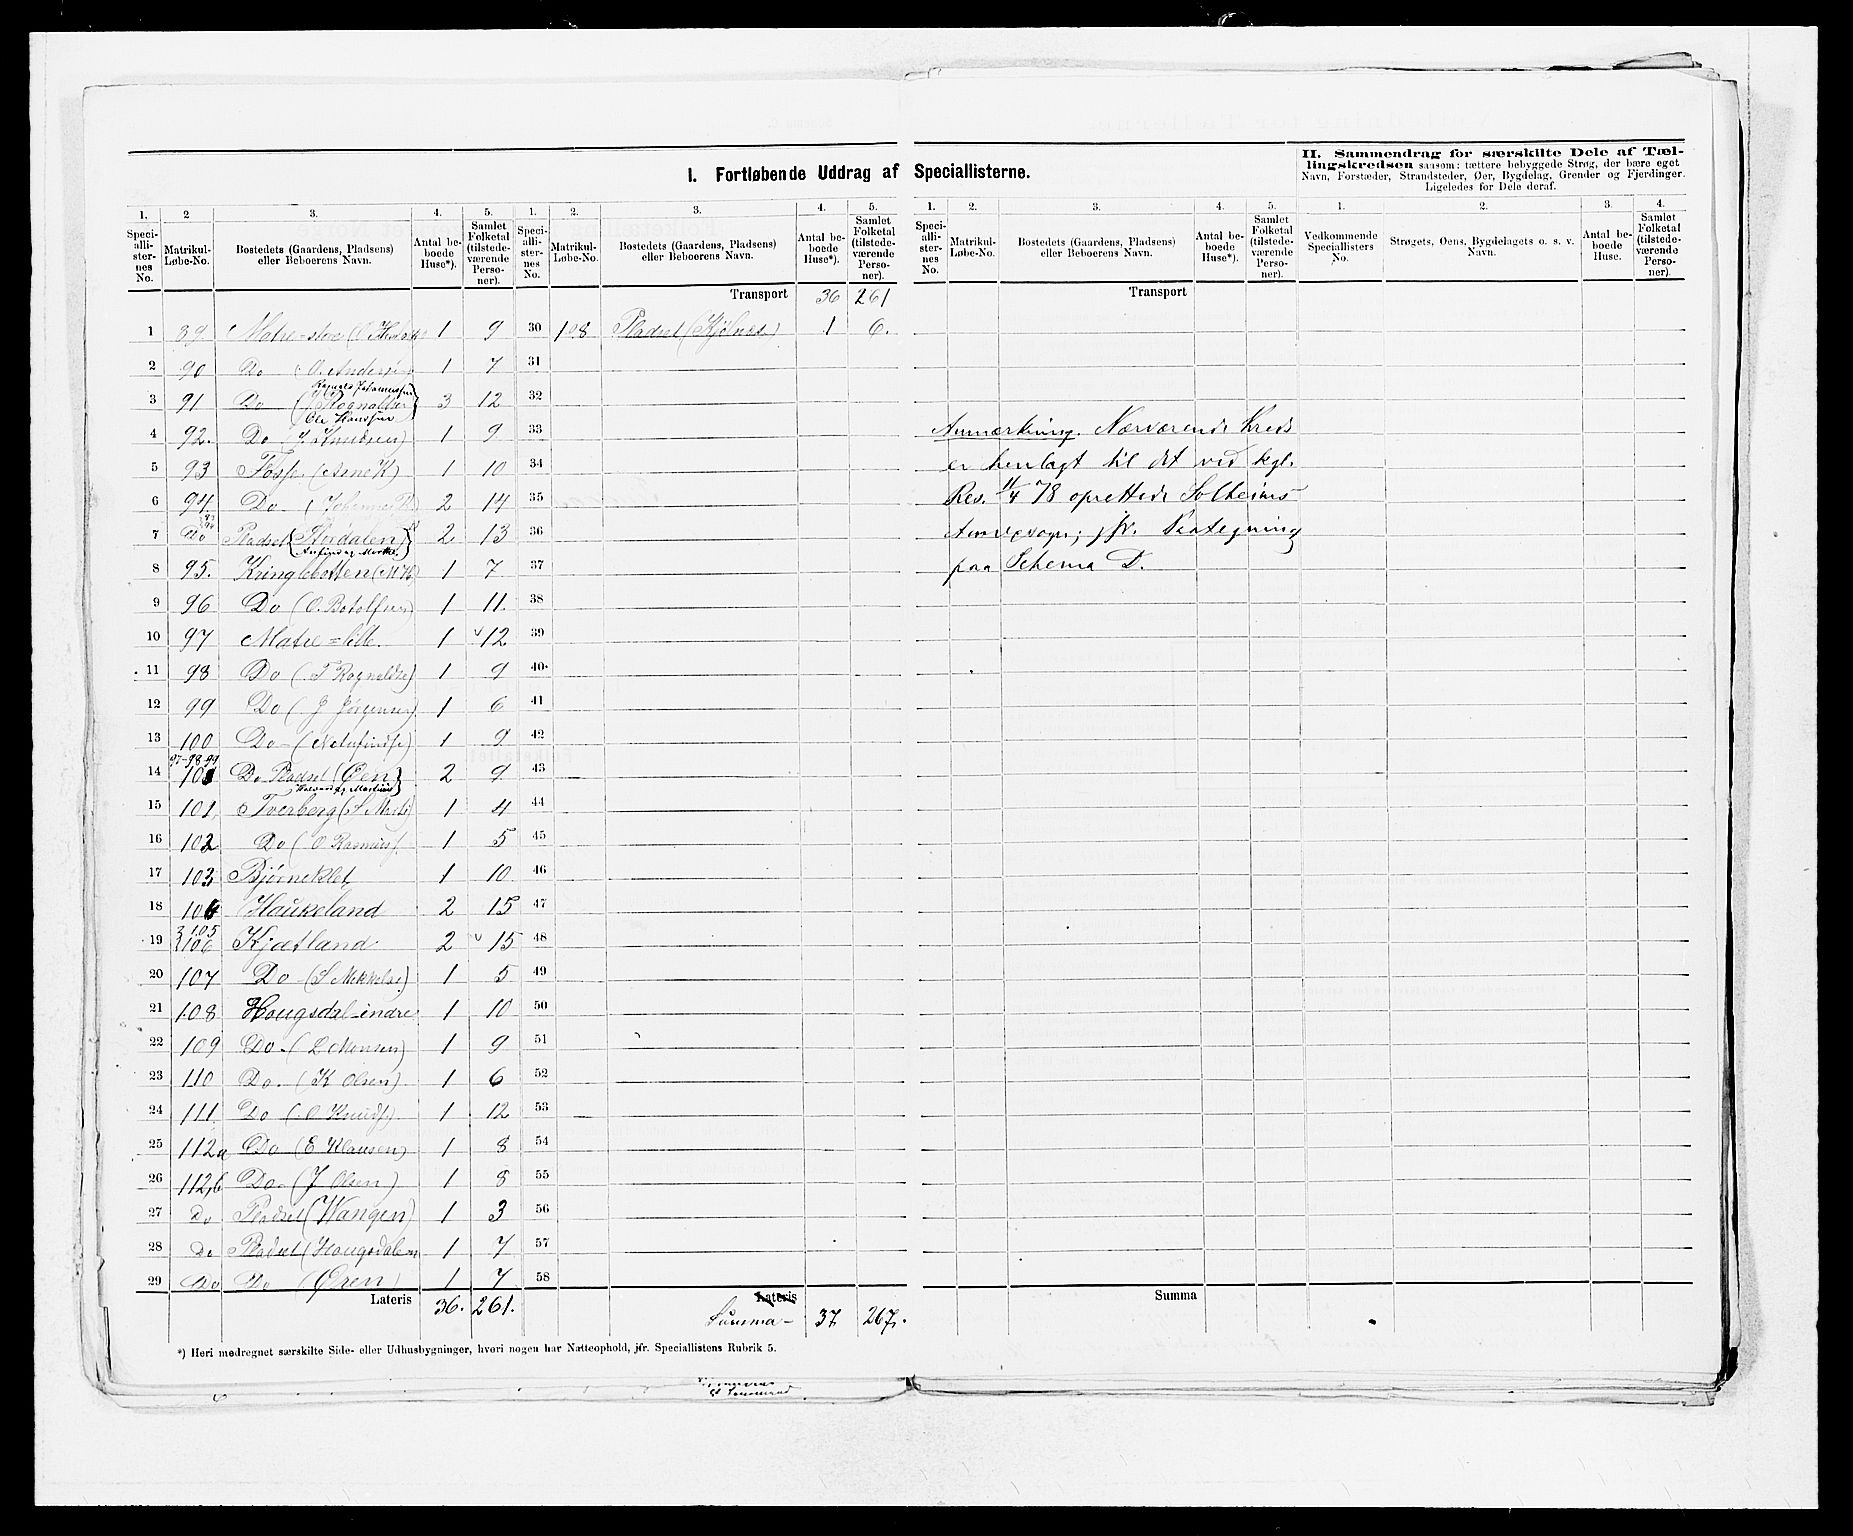 I. Fortløbende Uddrag af Speciallisterne.
II. Sammendrag for særskilte Dele af Tæl-
lingskredsen saasom: tættere bebyggede Strøg, der bære eget
Navn, Forstæder, Strandsteder, Øer, Bygdelag, Grender og Fjerdinger.
Ligeledes for Dele deraf.
1. 2 3. 4. 5. 1. 2. 3. 4. 5. 1. 2. 3. 4. 5. 1. 2. 3. 4.
Speciallisternes No. Matrikul-Løbe-No. Bostedets (Gaardens, Pladsens) eller Beboerens Navn. Antal beboede Huse*). Samlet Folketal (tilstedeværende Personer).
Speciallisternes No. Matrikul-Løbe-No. Bostedets (Gaardens, Pladsens) eller Beboerens Navn. Antal beboede Huse*). Samlet Folketal (tilstedeværende Personer).
Speciallisternes No. Matrikul-Løbe-No. Bostedets (Gaardens, Pladsens) eller Beboerens Navn. Antal beboede Huse*). Samlet Folketal (tilstedeværende Personer).
Vedkommende Speciallisters No. Strøgets, Øens, Bygdelagets o. s. v. Navn. Antal beboede Huse. Samlet Folketal (tilstedeværende Personer).
Transport 36 261 Transport
1 89 Matre-store 1 9 30 108 Pladset (Kjølnes) 1 6.
2 90 Do (O. Anderse 1 7 31
3 91 Do 3 12 32
4 92. Do 1 9 33
5 93 Fosse (Arne K) 1 10 34
6 94 Do (Johannes 2 14 35
7 Do Pladset (Stordalen) 2 13 36
8 95. Kringlebotten 1 7 37
9 96 Do (O. Botolfsen) 1 11. 38
10 97 Matre=lille. 1 12 39
11 98 Do (T Ragnalds) 1 9 40
12 99 Do (J Jørgensen) 1 6 41
13 100 Do 1 9 42
97-98-99
14 100 Do Pladset (Øen) 2 9 43
15 101 Tverberg 1 4 44
16 102 Do (O Rasmus 1 5 45
17 103 Bjørneklet 1 10 46
18 104 Haukeland 2 15 47
19 105 106 Kjætland 2 15 48
20 107 Do (S Mekkels.) 1 5 49
21 108 Hougsdal-indre 1 10 50
22 109 Do. (L Monsen) 1 9 51
23 110 Do. (K Olsen) 1 6 52
24 111 Do (O Knuds) 1 12 53
25 112a Do (E Klausen) 1 8 54
26 112b Do (J Olsen) 1 8 55
27 Do Pladset (Vangen) 1 3 56
28 Do Pladset (Hougsdalen 1 7 57
29 Do Do (Øren) 1 7 58
Lateris 36. 261. Lateris Summa
Summa 37 267.
*) Heri medregnet særskilte Side- eller Udhusbygninger, hvori nogen har Natteophold, jfr. Speciallistens Rubrik 5.
Anmærkning. Nærværende Kreds
er henlagt til det ved kgl.
Res. 11/4 78 oprettede Solheims
Annexsogn; jfr. Paategning
paa Schema D.